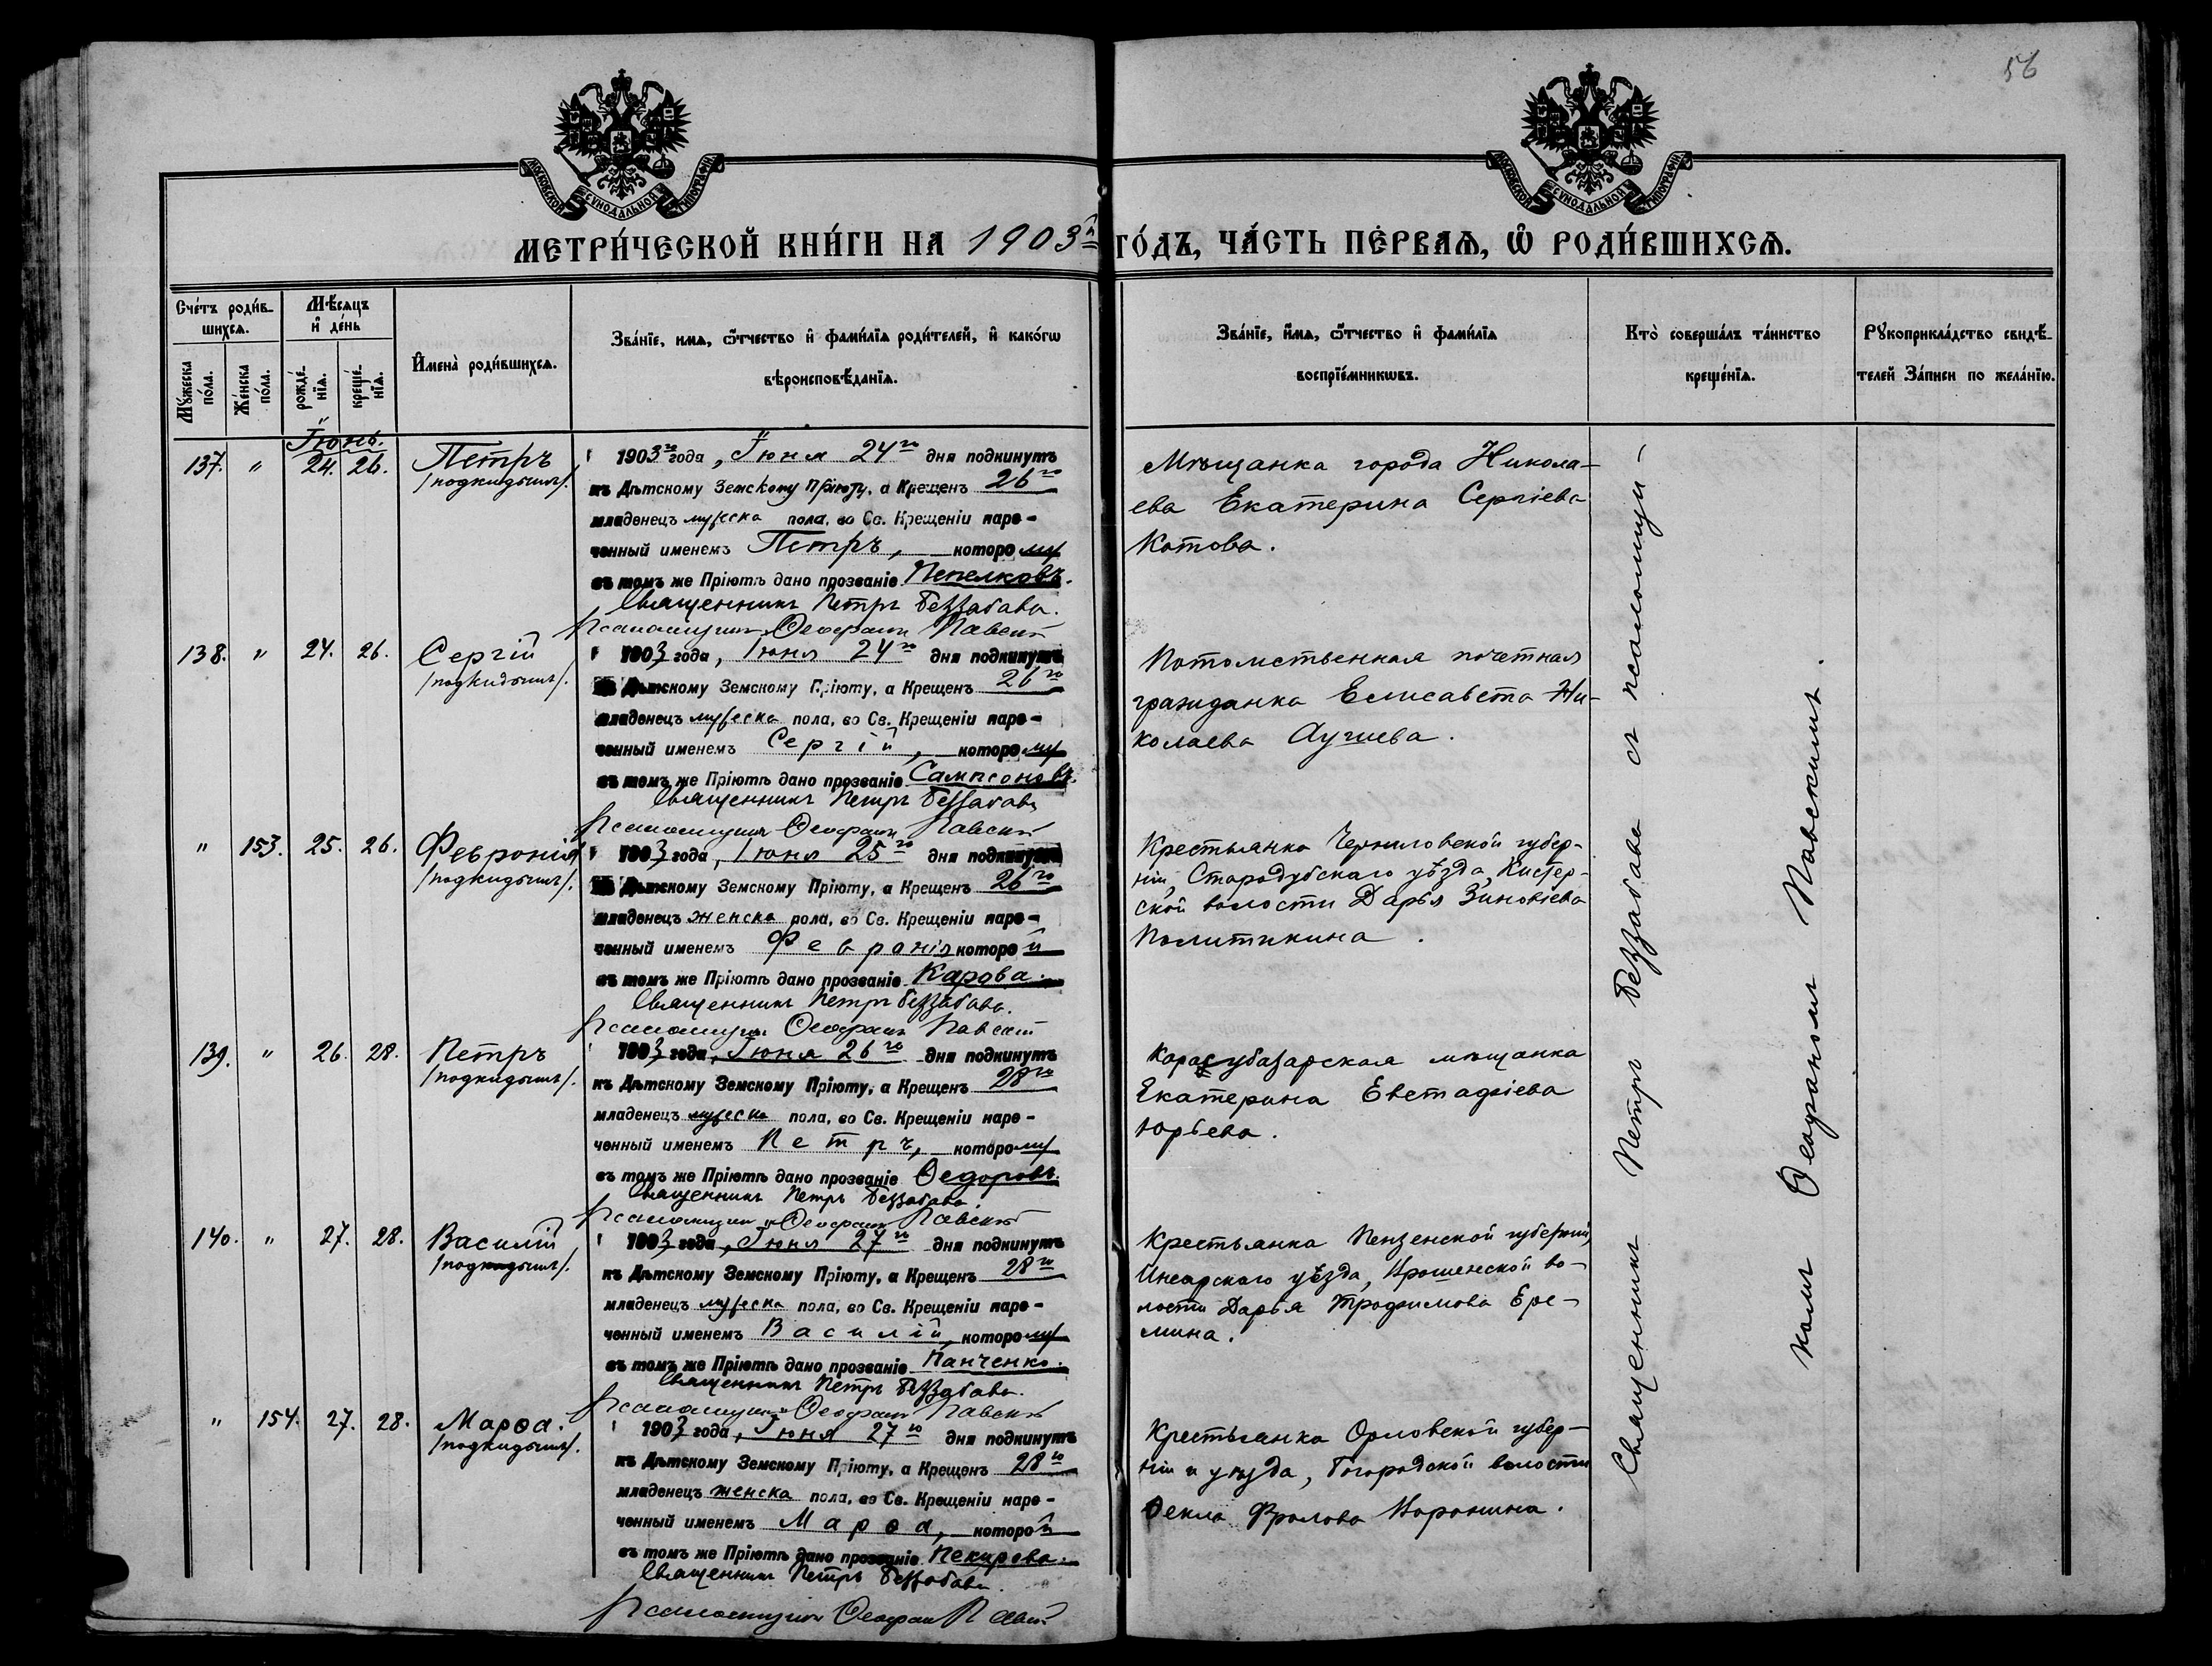 56
МОСКОВСКОЙ СѴНОДАЛЬНОЙ ТИПОГРАФІИ
МОСКОВСКОЙ СѴНОДАЛЬНОЙ ТИПОГРАФІИ
МЕТРИ́ЧЕСКОЙ КНИ́ГИ НА 1903й ГО́ДЪ, ЧА́СТЬ ПЕ́РВАЯ, Ѡ РОДИ́ВШИХСЯ.
Сче́тъ роди́в-
шихся.
Мѣ́сяцъ
и де́нь
Мꙋ́жеска
по́ла.
Же́нска
по́ла.
рожде́-
нїя.
креще́-
нїя.
Имена̀ роди́вшихся.
Зва́нїе, имя, ѻ҆́тчество и҆ фами́лїя роди́телей, и҆ како́гѡ
вѣроисповѣ́данїя.
Зва́нїе, и҆́мя, ѻ҆́тчество и҆ фами́лїя
воспрїе́мникѡвъ.
Кто̀ соверша́лъ та́инство
креще́нїя.
Рꙋкоприкла́дство свидѣ́-
телей За́писи по жела́нїю.
Іюнь.
137. " 24. 26. Петръ
/подкидышъ/.
1903го года, Іюня 24го дня подкинутъ
къ Дѣтскому Земскому Пріюту, а Крещенъ 26го
младенецъ мужеска пола, во Св. Крещеніи наре-
ченный именемъ Петръ, которому
въ томъ же Пріютѣ дано прозваніе Пепелковъ.
Священникъ Петръ Беззабава.
Псаломщикъ Ѳеофанъ Павскій
Мѣщанка города Никола-
ева Екатерина Сергіева
Котова.
138. " 24. 26. Сергій
/подкидышъ/.
1903 года, Іюня 24го дня подкинутъ
къ Дѣтскому Земскому Пріюту, а Крещенъ 26го
младенецъ мужеска пола, во Св. Крещеніи наре-
ченный именемъ Сергій, которому
въ томъ же Пріютѣ дано прозваніе Сампсоновъ.
Священникъ Петръ Беззабава
Псаломщикъ Ѳеофанъ Павскій
Потомственная почетная
гражданка Елисавета Ни-
колаева
" 153. 25. 26. Февронія
/подкидышъ/.
1903 года, Іюня 25го дня подкинутъ
къ Дѣтскому Земскому Пріюту, а Крещенъ 26го
младенецъ женска пола, во Св. Крещеніи наре-
ченный именемъ Февронія которой
въ томъ же Пріютѣ дано прозваніе Карова.
Священникъ Петръ Беззабава.
Псаломщикъ Ѳеофанъ Павскій
Крестьянка Черниговской губер-
ніи, Стародубскаго уѣзда, Кистер-
ской волости Дарья Зиновіева
Политикина.
139. " 26. 28. Петръ
/подкидышъ/.
1903 года, Іюня 26го дня подкинутъ
къ Дѣтскому Земскому Пріюту, а Крещенъ 28го
младенецъ мужеска пола, во Св. Крещеніи наре-
ченный именемъ Петръ, которому
въ томъ же Пріютѣ дано прозваніе Ѳедоровъ.
Священникъ Петръ Беззабава
Псаломщикъ Ѳеофанъ Павскій
Карасубазарская мѣщанка
Екатерина Евстафіева
Юрьева.
140. " 27. 28. Василій
/подкидышъ/.
1903 года, Іюня 27го дня подкинутъ
къ Дѣтскому Земскому Пріюту, а Крещенъ 28го
младенецъ мужеска пола, во Св. Крещеніи наре-
ченный именемъ Василій, которому
въ томъ же Пріютѣ дано прозваніе Панченко.
Священникъ Петръ Беззабава.
Псаломщикъ Ѳеофанъ Павскій
Крестьянка Пензенской губерніи,
Инсарскаго уѣзда, во-
лости Дарья Трофимова Ере-
мина.
" 154. 27. 28. Марѳа.
/подкидышъ/.
1903 года, Іюня 27го дня подкинутъ
къ Дѣтскому Земскому Пріюту, а Крещенъ 28го
младенецъ женска пола, во Св. Крещеніи наре-
ченный именемъ Марѳа, которой
въ томъ же Пріютѣ дано прозваніе Пекирева.
Священникъ Петръ Беззабава.
Псаломщикъ Ѳеофанъ Павскій
Крестьянка Орловской губер-
ніи и уѣзда, волости
Ѳекла Фролова Воронина.
Священникъ Петръ Беззабава съ псаломщи-
комъ Ѳеофаномъ Павскимъ.